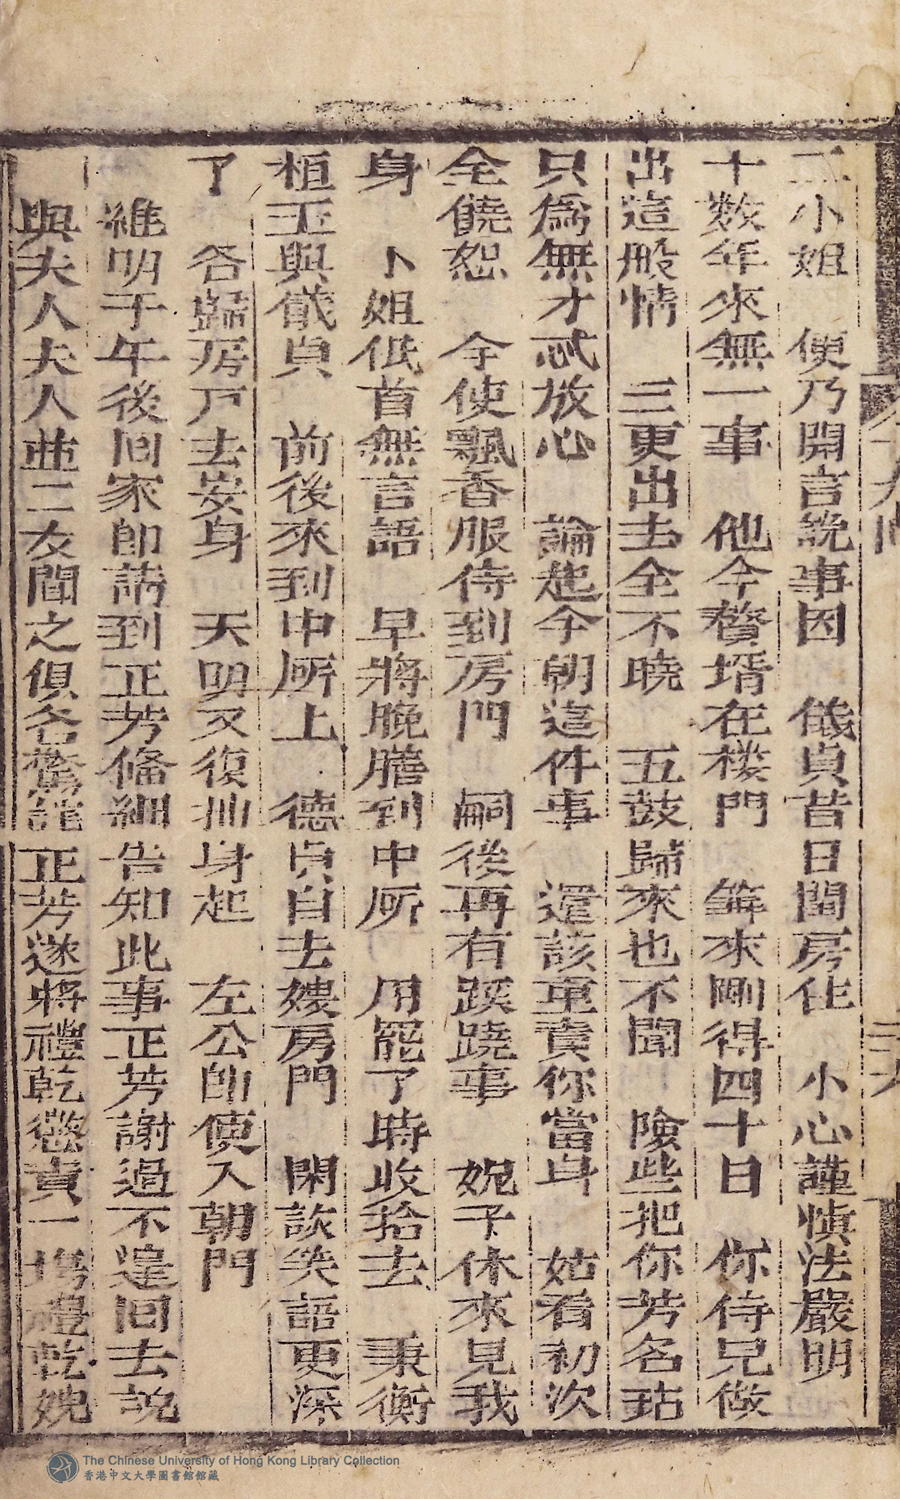 二小姐　便乃開言說事因　儀貞昔日閨房住　小心謹慎法嚴明
十数年來無一事　他今贅壻在樓門　筭來剛得四十日　你侍兒做
出這般情　三更出去全不曉　五鼓歸來也不聞　險些把你芳名玷
只爲無才忒放心　論起今朝這件事　還該重責你當身　姑看初次
全饒恕　今使飄香服侍到房門　嗣後再有蹊蹺事　婉子休來見我
身　卜姐低首無言語　早將晚膳到中所　用罷了時收拾去　秉衡
桓玉與儀貞　前後來到中所上　德貞自去嫂房門　閑談笑語更深
了　各歸房戸去安身　天明又復抽身起　左公即便入朝門
維明于午後回家即請到正芳俻細告知此事正芳謝過不遑回去說
與夫人夫人並二友聞之俱各驚詫正芳遂將禮乾懲責一塲禮乾婉
十九回
二六
The Chinese University of Hong Kong Library Collection
香港中文大學圖書館館藏